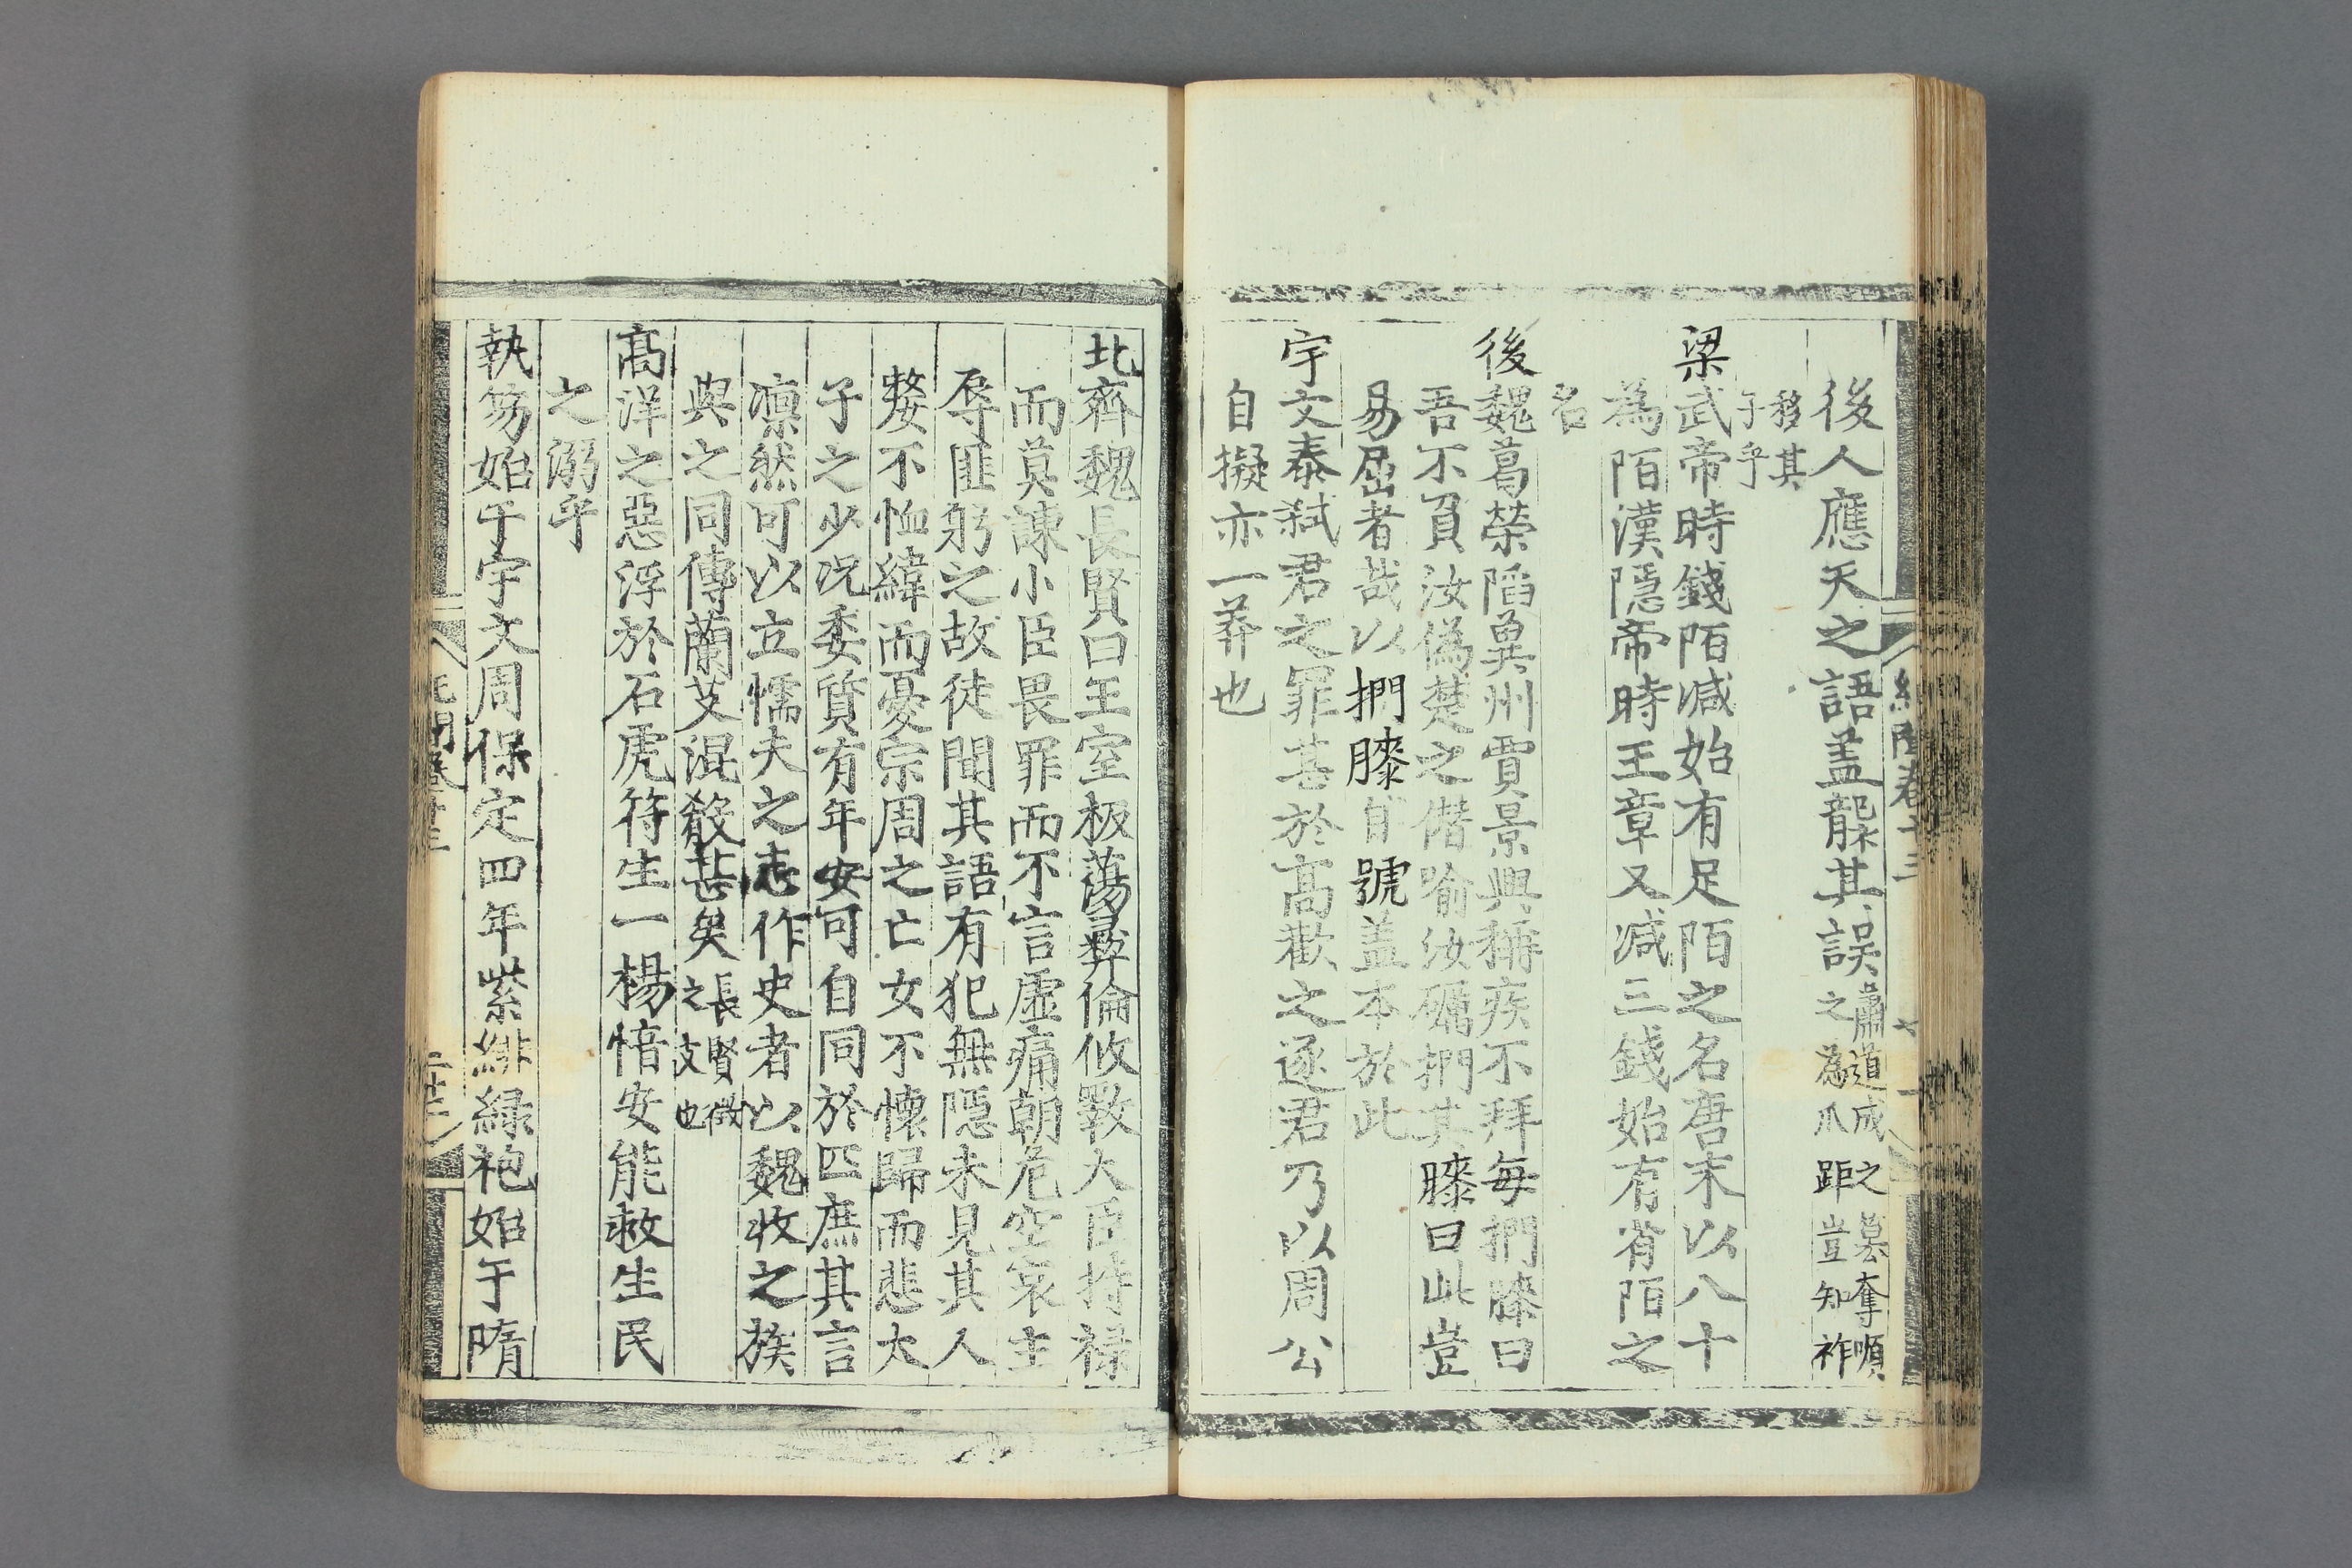 後人應天之語盖襲其誤蕭道成之篡奪順之為爪距豈知祚
移其子乎
梁武帝時錢陌减始有足陌之名唐末以八十
為陌漢隱帝時王章又减三錢始有省陌之
名
後魏葛榮陷兾州賈景興稱疾不拜每捫膝曰
吾不負汝偽楚之僭喻汝礪捫其膝曰此豈
易屈者哉以捫膝自號盖本於此
宇文泰弑君之罪甚於高歡之逐君乃以周公
自擬亦一莽也
北齊魏長賢曰王室板蕩彛倫攸斁大臣持禄
而莫諫小臣畏罪而不言虚痛朝危空哀主
辱匪躬之故徒聞其語有犯無隱未見其人
嫠不恤緯而憂宗周之亡女不懐歸而悲太
子之少况委質有年安可自同於匹庶其言
凛然可以立懦夫之志作史者以魏收之族
與之同傳蘭艾混殽甚矣長賢徴之父也
高洋之惡浮於石虎符生一楊愔安能救生民
之溺乎
執笏始于宇文周保定四年紫緋緑袍始于隋